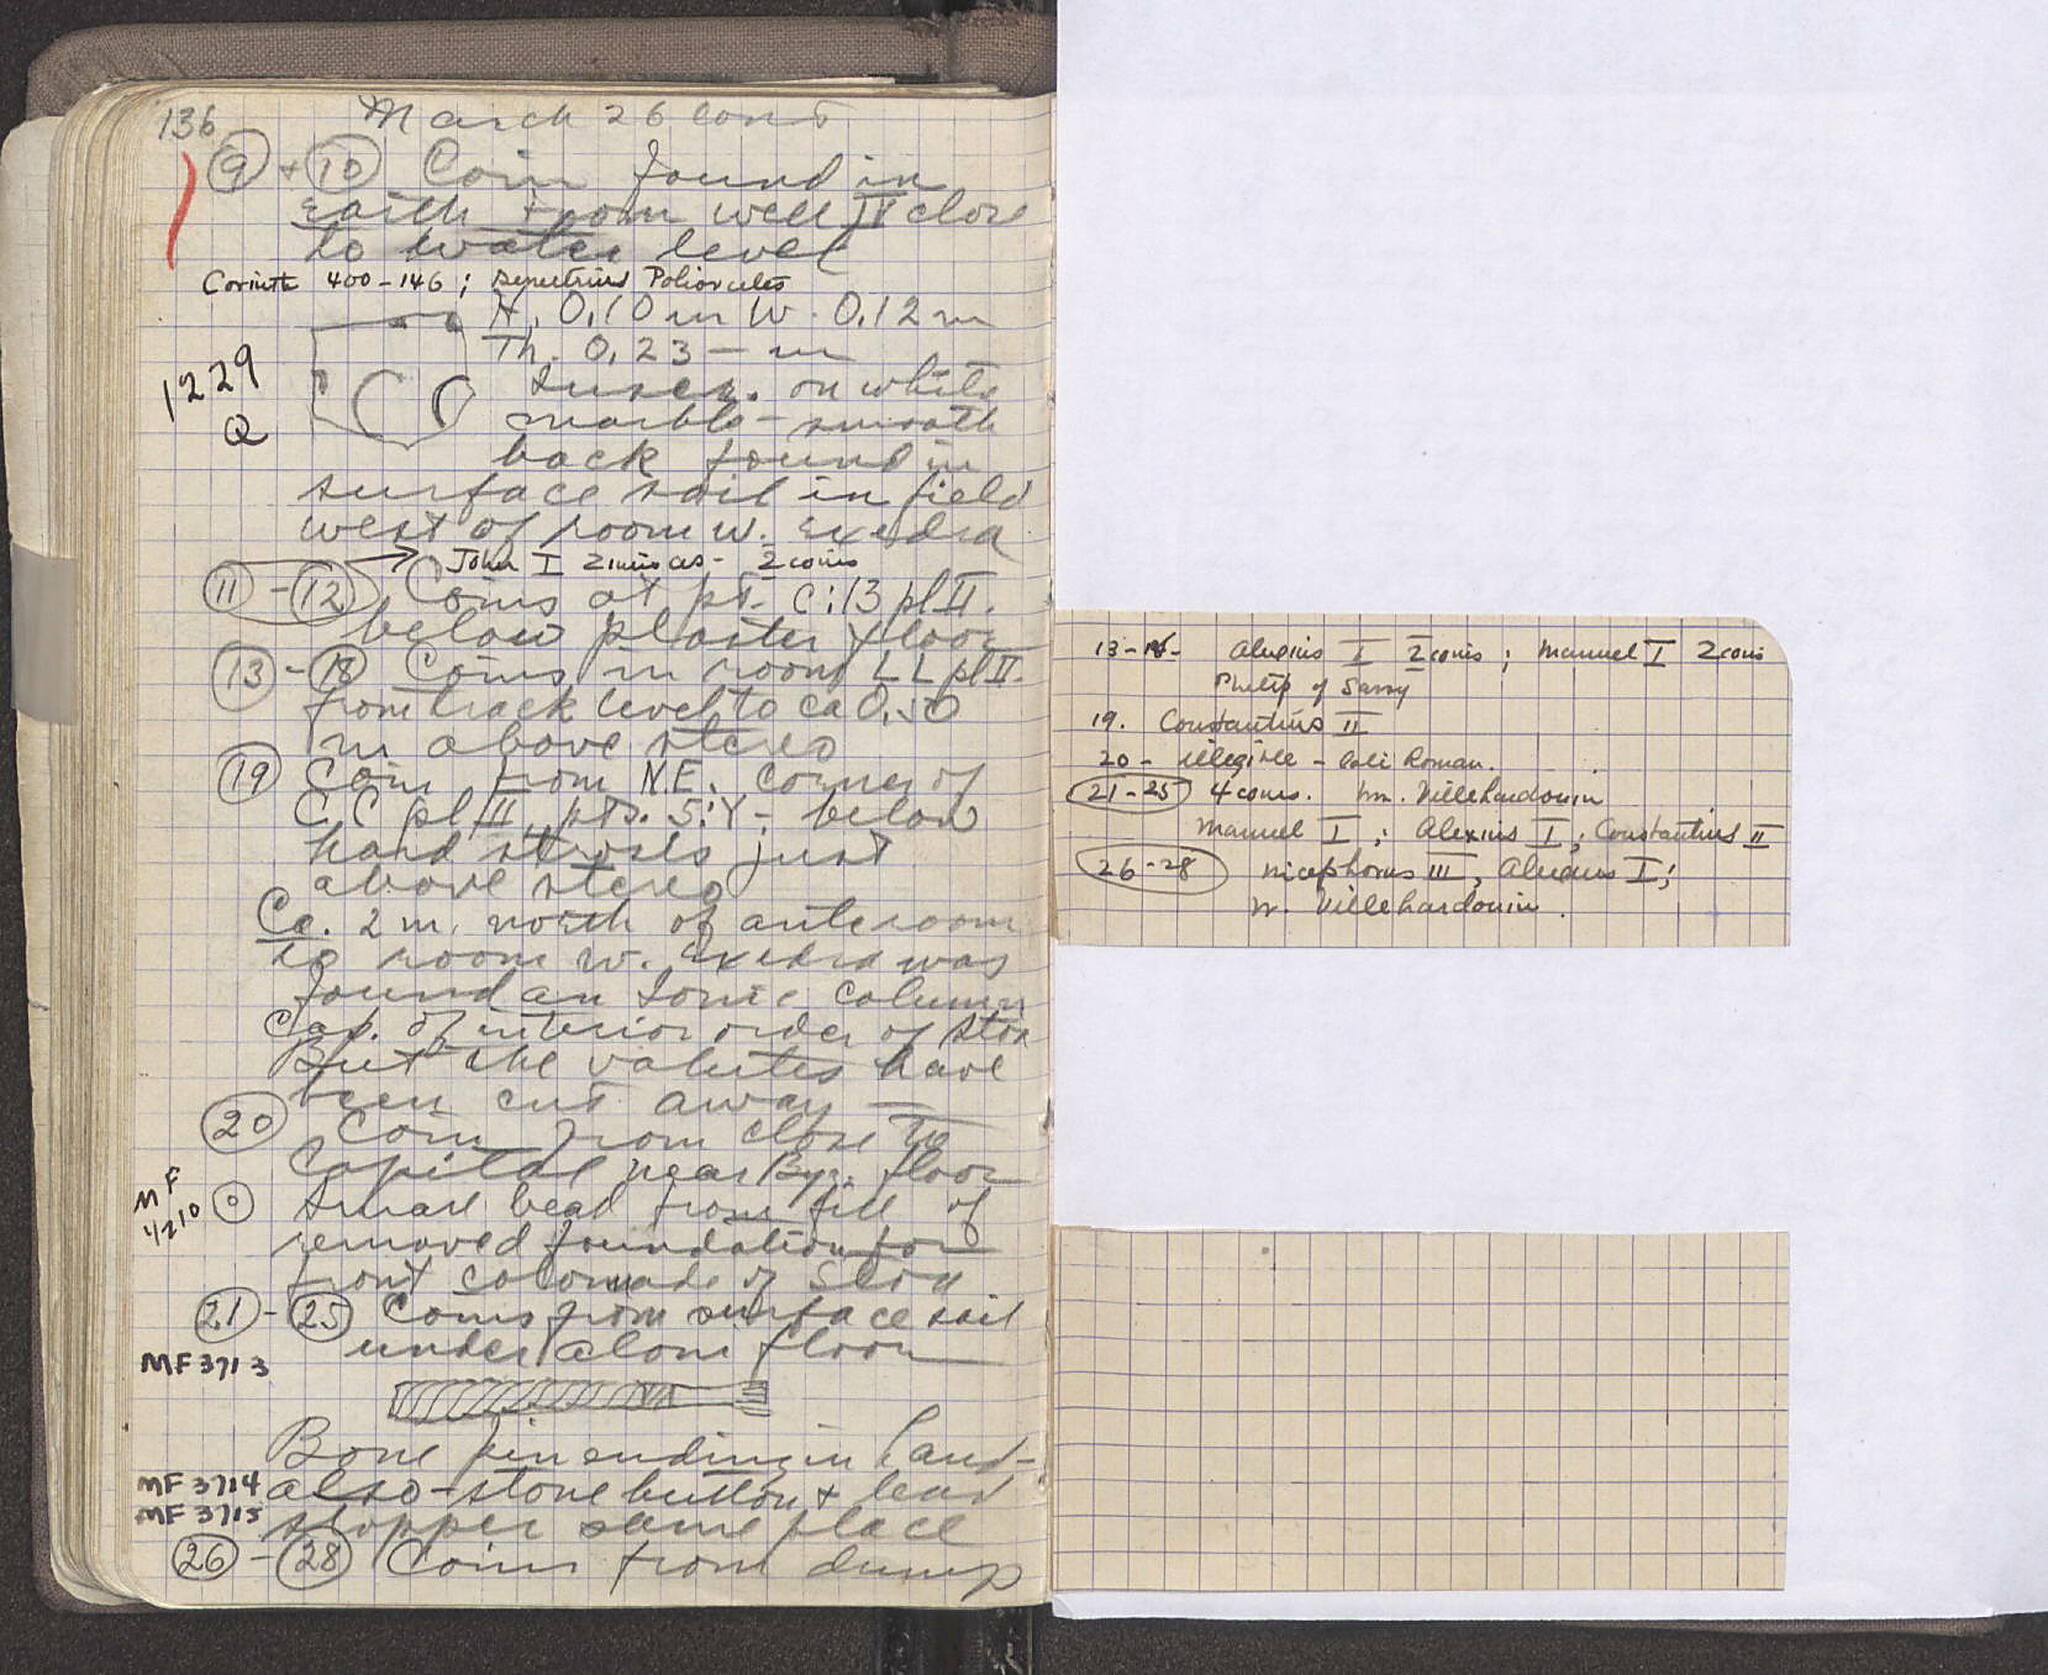 136 March 26 cont
9 + 10 Coin found in
earth from well IV close
to water level
Corinth 400-146; Demetrius Poliorcetes
H. 0,10 m W. 0.12 m
Th. 0,23 - m
1229
Q
Inscr. on white
marble - smooth
back found in
surface soil in field
west of room w. exedra
John I Zimisces - 2 coins
11 - 12 Coins at pt. C:13 pl II.
below plaster floor
13 - 18 Coins in room LL pl II.
from track level to ca 0.50
m above stereo
19 Coin from N.E. corner of
CC pl III, pts. 5:Y - below
hard strosis just
above stereo
Ca. 2 m. north of anteroom
to room w. Exedra was
found an Ionic column
Cap. of interior order of Stoa
But the volutes have
been cut away —
20 Coin from close to
Capital near Byz. floor
MF
4210
Small bead from fill of
removed foundation for
front colonnade of Stoa
21 - 25 Coins from surface soil
under aloni floor
MF 3713
Bone pin ending in hand -
MF 3714 also - stone button + lead
MF 3715 stopper same place
26 - 28 Coins from dump
13-18- Alexius I 2 coins; Manuel I 2 coins
Philip of Savoy
19. Constantius II
20 - illegible - late Roman.
21-25 4 coins. Wm. Villehardouin
Manuel I; Alexius I, Constantius II
26-28 Nicephorus III, Alexius I;
W. Villehardouin.